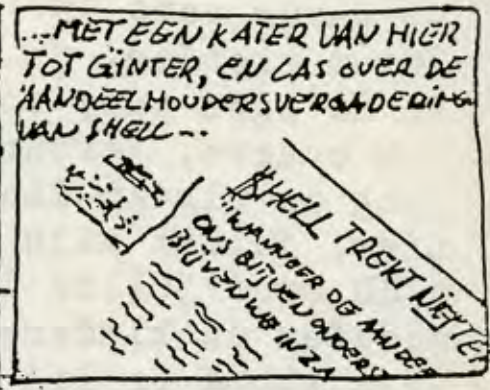 ...MET EEN KATER VAN HIER
TOT GINTER, EN LAS OVER DE
AANDEELHOUDERSVERGADERING
VAN SHELL...
$HELL TREKT NIET TE
"WANNEER DE AANDEE
ONS BLIJVEN ONDERS
BLIJVEN WE IN Z.A